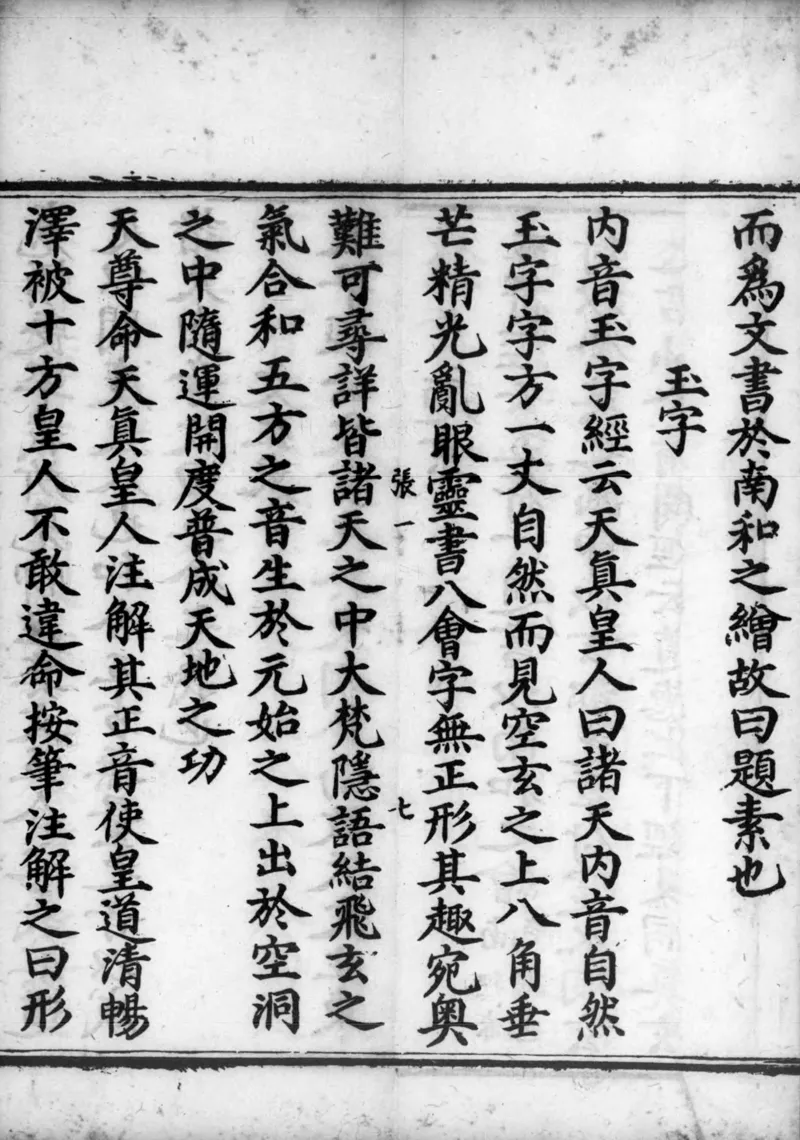 而爲文書於南和之繒故曰題素也
玉字
内音玉字經云天眞皇人曰諸天内音自然
玉字字方一丈自然而見空玄之上八角垂
芒精光亂眼靈書八會字無正形其趣宛奥
張一 七
難可尋詳皆諸天之中大梵隱語結飛玄之
氣合和五方之音生於元始之上出於空洞
之中隨運開度普成天地之功
天尊命天眞皇人注解其正音使皇道清暢
澤被十方皇人不敢違命按筆注解之曰形